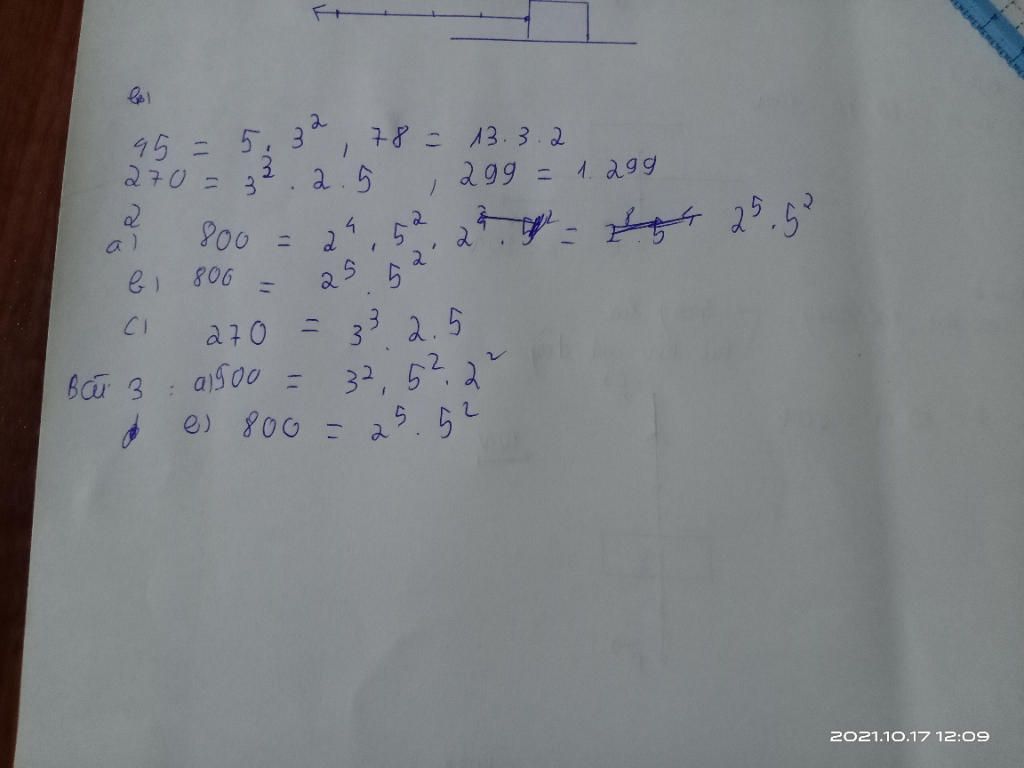 b)
45 = 5 . 3² , 78 = 13 . 3 . 2
270 = 3³ . 2 . 5 , 299 = 1 . 299
2
a) 800 = 2⁴ . 5² . = 2⁵ . 5²
b) 800 = 2⁵ . 5²
c) 270 = 3³ . 2 . 5
Bài 3 : a) 900 = 3² . 5² . 2²
e) 800 = 2⁵ . 5²
2021.10.17 12:09